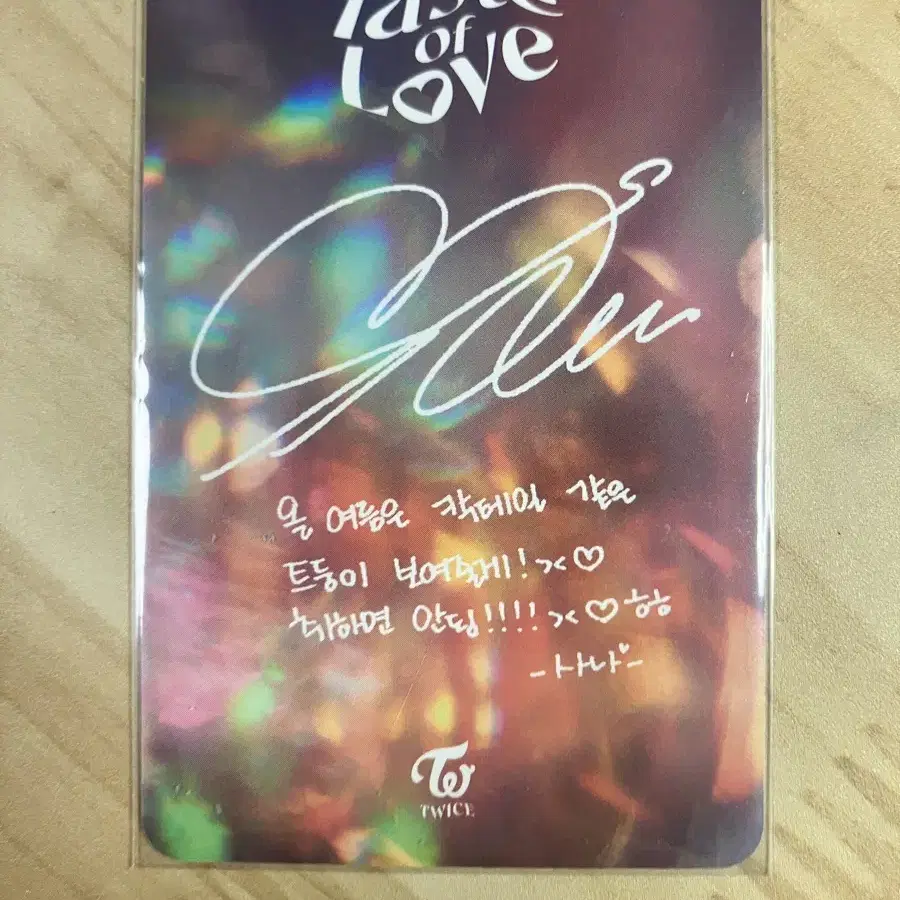 Taste
of
Love
올 여름은 칵테일 같은
트둥이 보여줄게! >< ♡
취하면 안됭!!!! >< ♡ ㅎㅎ
- 사나 -
TWICE